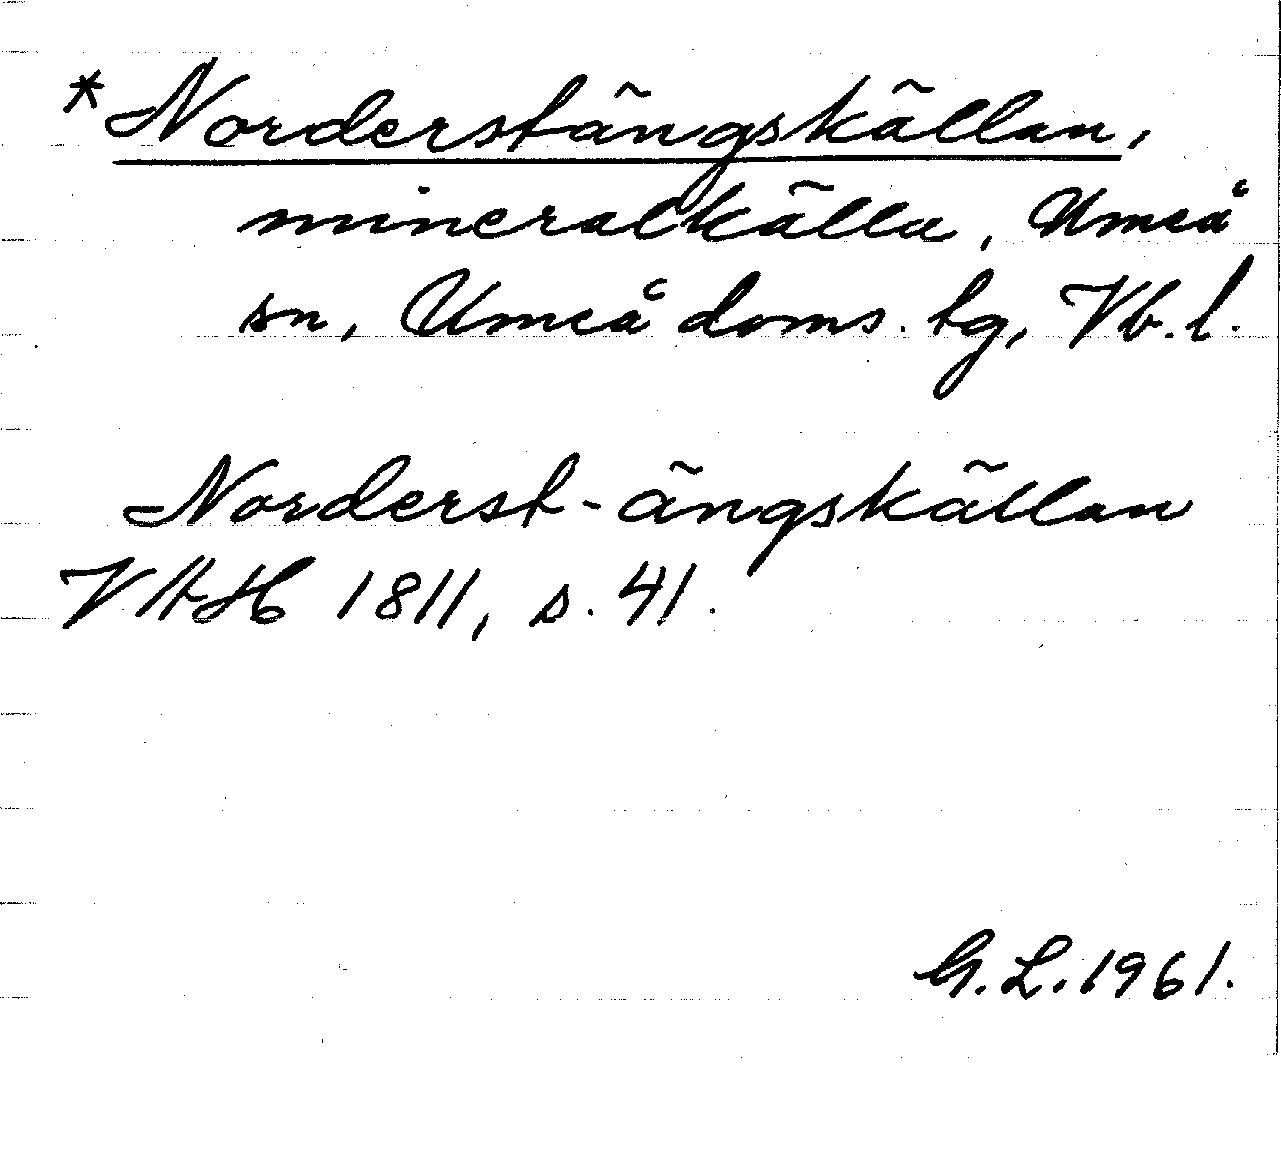 *Norderstängskällan,
mineralkälla, Umeå
sn, Umeå doms. tg, Vb. l.
Norderst-ängskällan
VAH 1811, s. 41.
G. L. 1961.